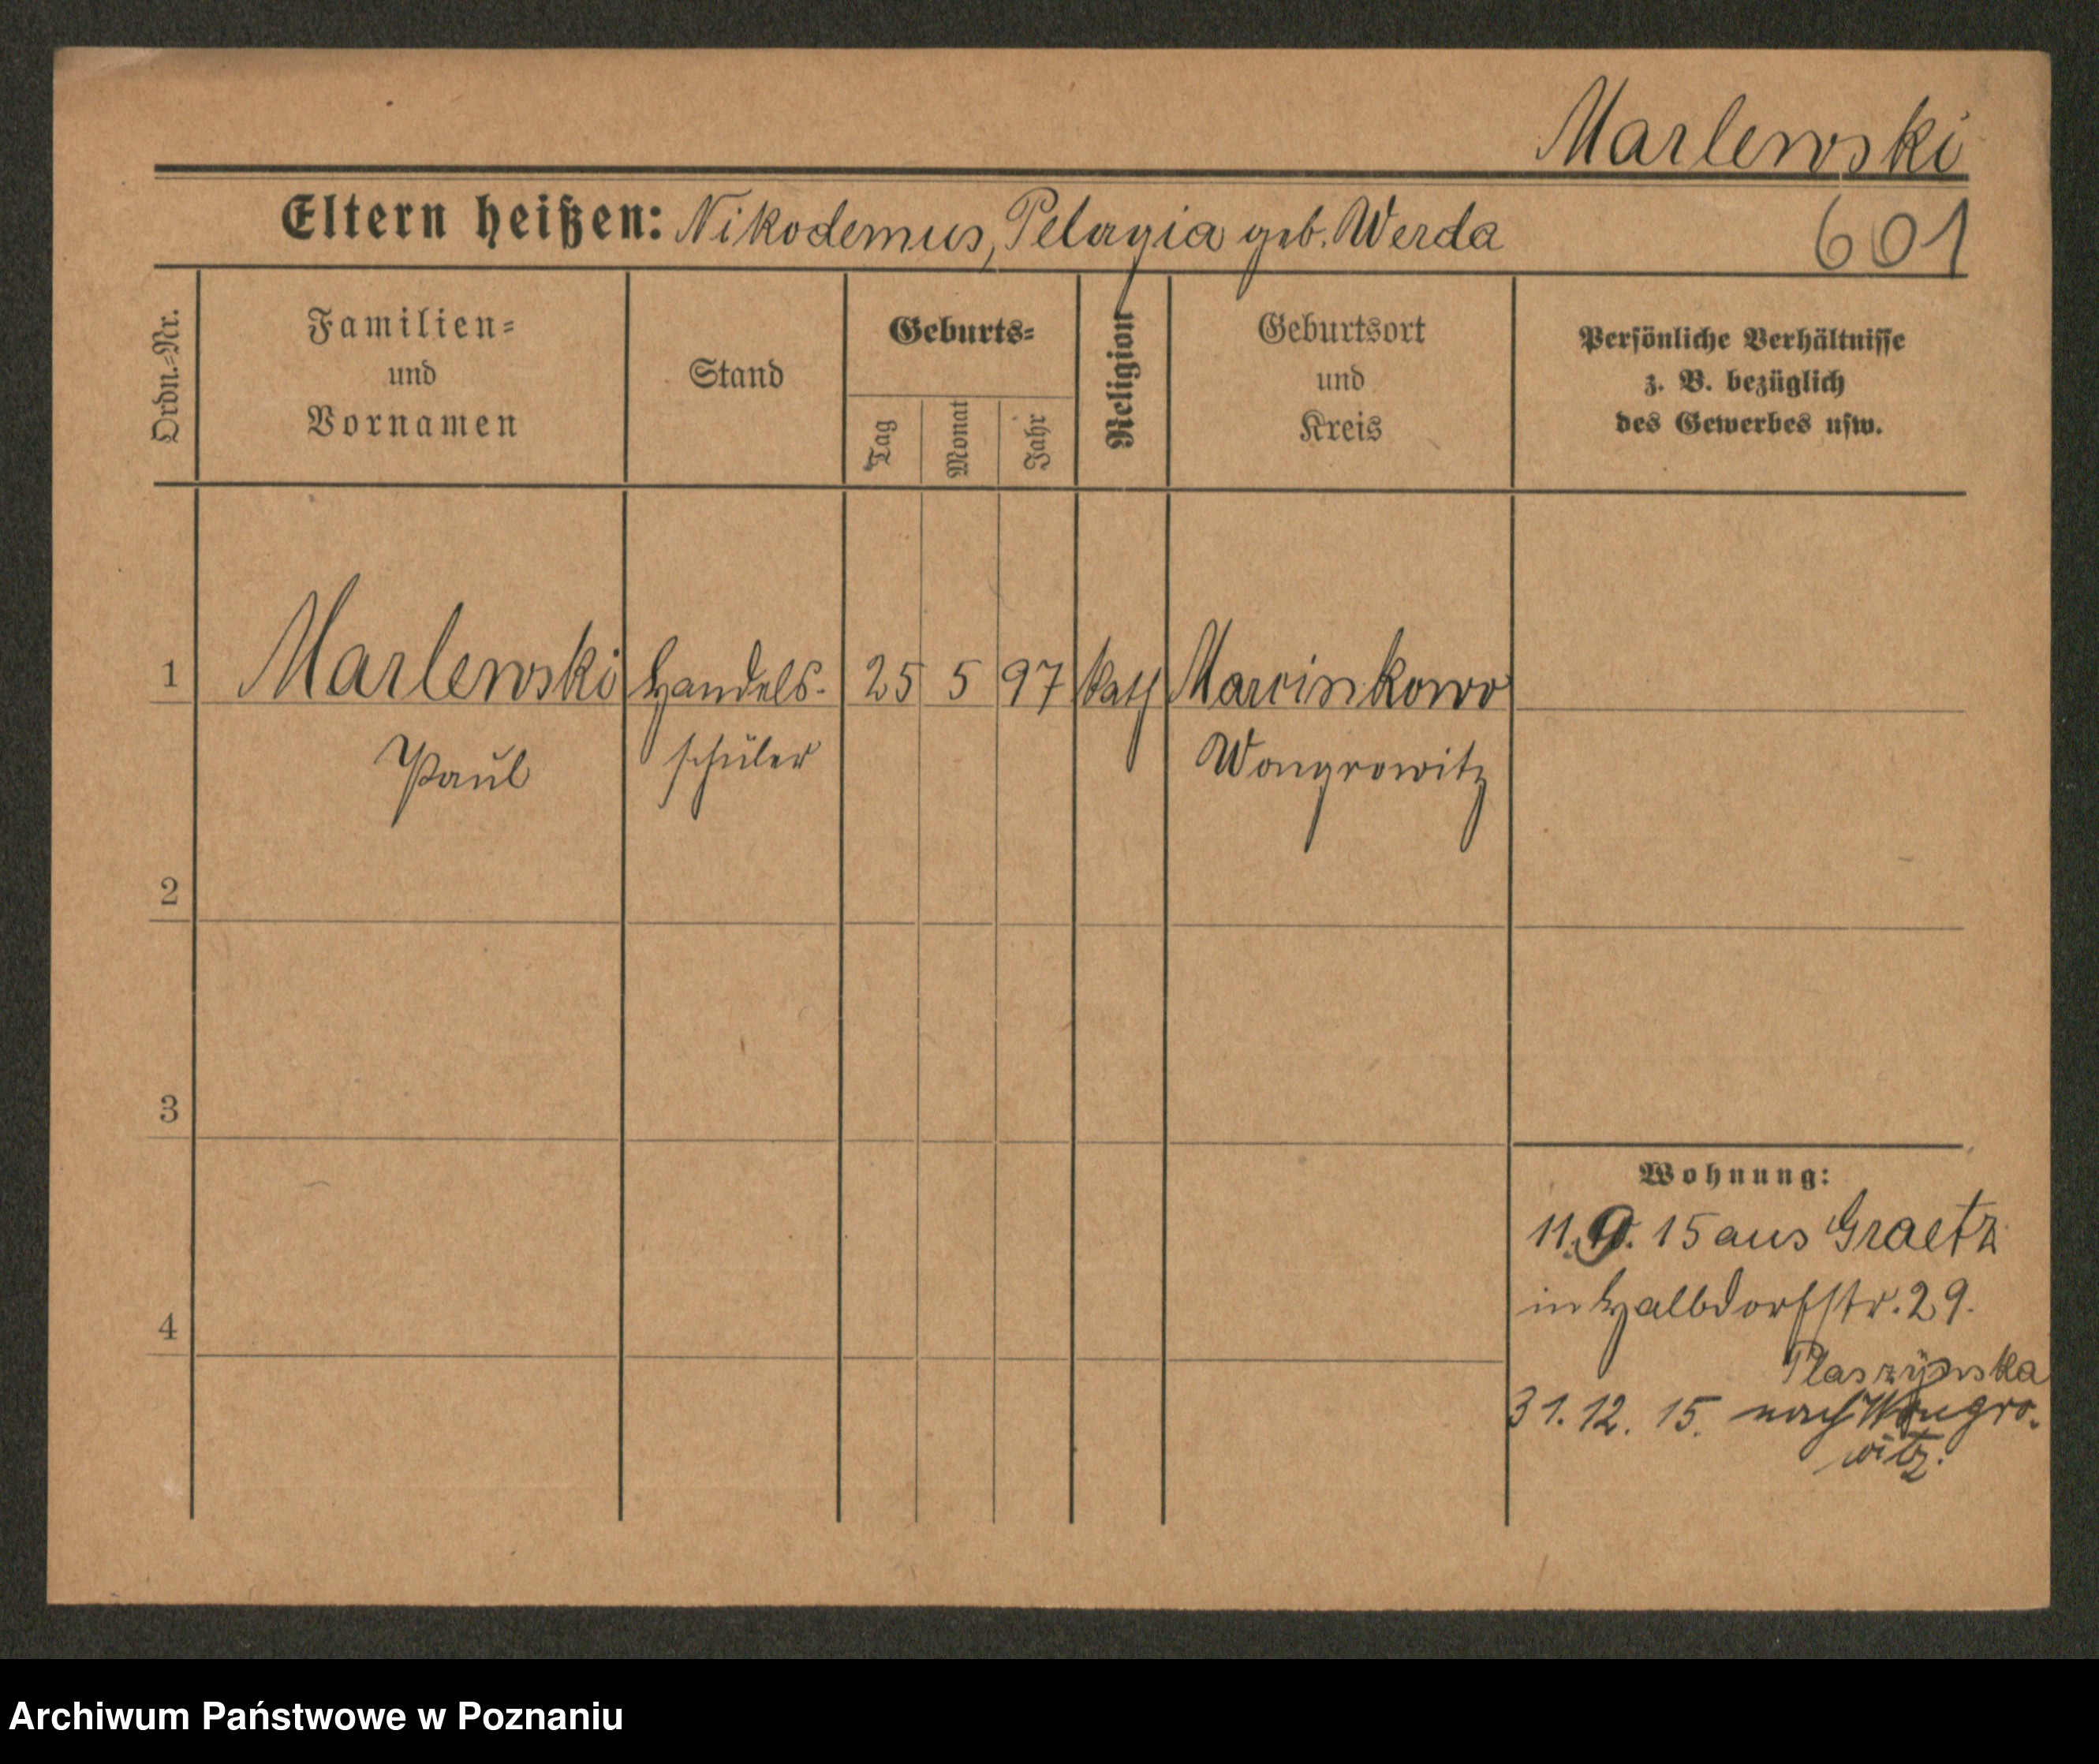 Marlewski
Eltern heißen: Nikodemus, Pelagia geb. Werda
601
Ordn.-Nr.
Familien-
und
Vornamen
Stand
Geburts-
Tag
Monat
Jahr
Religion
Geburtsort
und
Kreis
Persönliche Verhältnisse
z. B. bezüglich
des Gewerbes usw.
1 Marlewski Handels- 25 5 97 kath Marcinkowo
Paul schüler Wongrowitz
2
3
Wohnung:
11. 9. 15 aus Graetz
in Halbdorfstr. 29.
4
Plaszynska
31. 12. 15. nach Wongro-
witz.
Archiwum Państwowe w Poznaniu